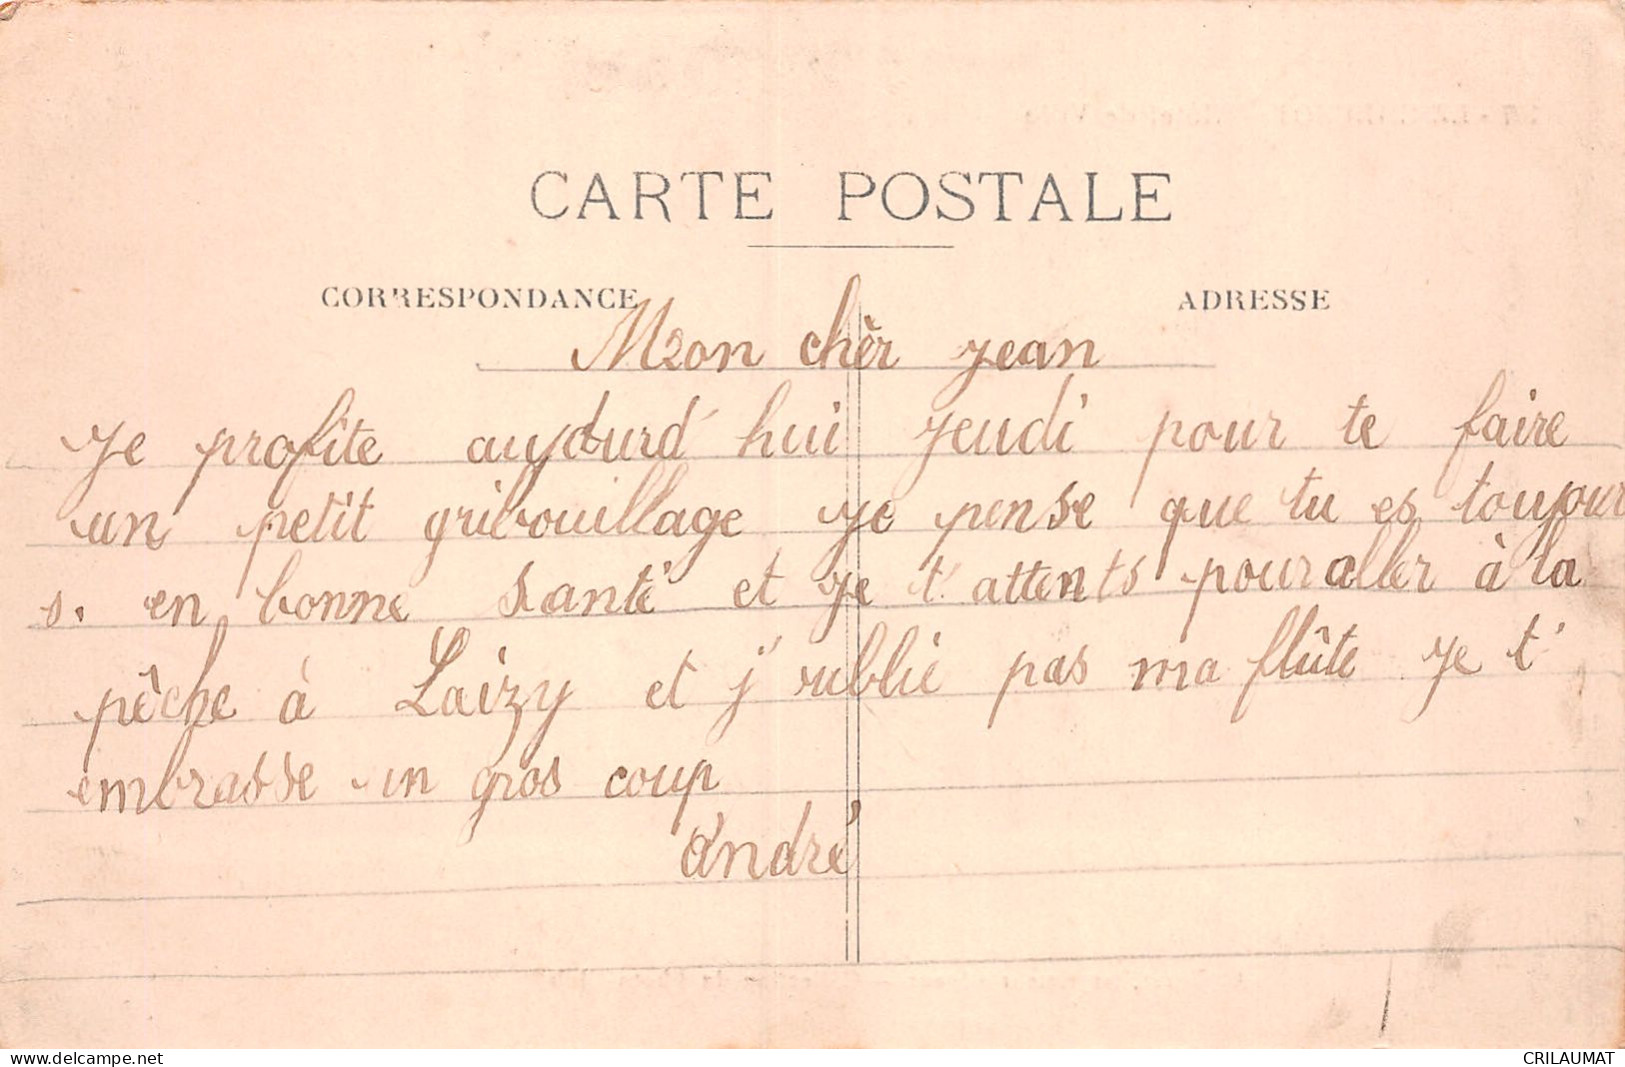 CARTE POSTALE
CORRESPONDANCE
ADRESSE
Mon chèr jean
je profite aujourd'hui jeudi pour te faire
un petit gribouillage je pense que tu es toujour
s. en bonne santé et je t'attents pour aller à la
pêche à Laizy et j'oublie pas ma flûte je t'
embrasse un gros coup
André
CRILAUMAT